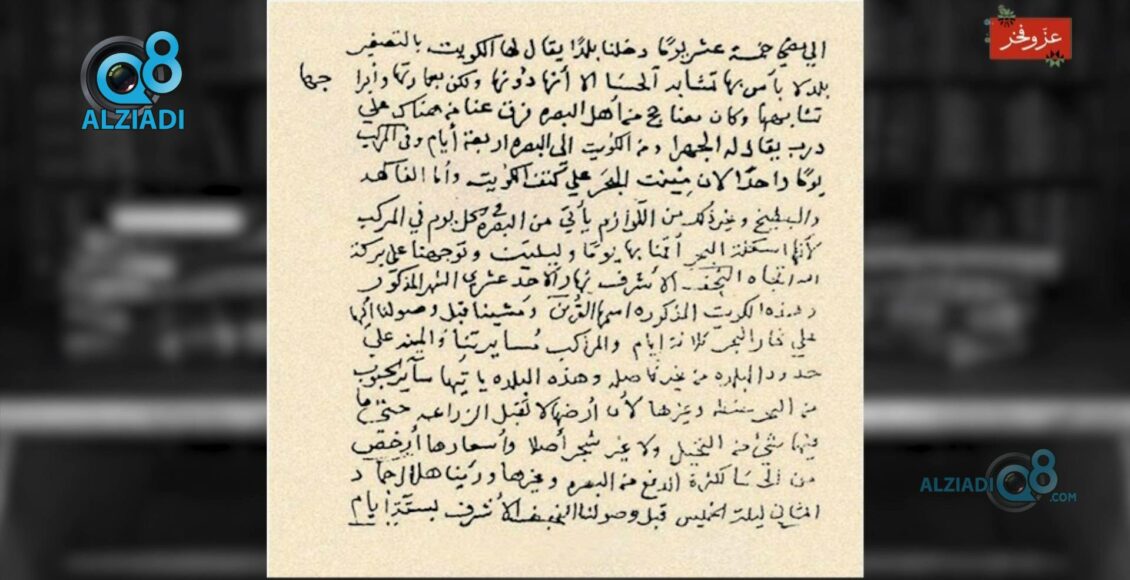 Q8
ALZIADI
عزّ وفخر
الي مضي خمسة عشر يومًا دخلنا بلدًا يقال لها الكويت بالتصغير
بلد لا بأس بها تشابه الحسا الا أنها دونها ولكن بعمارتها وأبراجها
تشابهها وكان معنا حج من أهل البصره فرق عنا من هناك علي
درب يقال له الجهرا ومن الكويت الى البصره اربعة أيام وفي المركب
يومًا واحدًا لان مينت البحر علي كتف الكويت وأما الفاكهه
والبطيخ وغير ذلك من اللوازم يأتي من البصرة في كل يوم في المركب
لأنها اسكلة البحر أقمنا بها يومًا وليلتين وتوجهنا على بركة
الله اتجاه النجف الأشرف نهار الأحد عشري الشهر المذكور
وهذه الكويت المذكوره اسمها القرين ومشينا قبل وصولنا اليها
علي كنار البحر ثلاثة أيام والمراكب مسايرتنا والمينه علي
حدود البلده من غير فاصله وهذه البلده يأتيها سائر الحبوب
من البحر حنطه وغيرها لأن أرضها لا تقبل الزراعه حتي ما
فيها شيء من النخيل ولا غير شجر أصلا وأسعارها أرخص
من الحسا لكثرة الدفع من البصره وغيرها ورأينا هلال جماد
الثاني ليلة الخميس قبل وصولنا النجف الأشرف بستة أيام
ALZIADI Q8
.COM